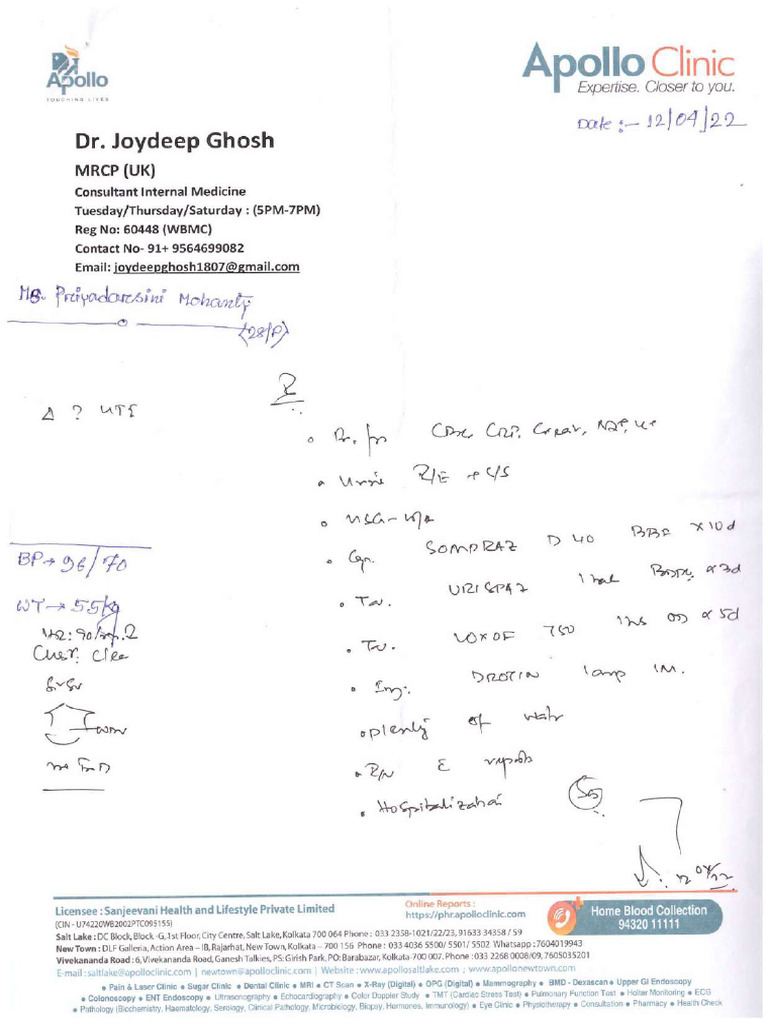 Apollo
TOUCHING LIVES
Apollo Clinic
Expertise. Closer to you.
Date :- 12/04/22
Dr. Joydeep Ghosh
MRCP (UK)
Consultant Internal Medicine
Tuesday/Thursday/Saturday : (5PM-7PM)
Reg No: 60448 (WBMC)
Contact No- 91+ 9564699082
Email: joydeepghosh1807@gmail.com
Ms. Priyadarsini Mohanty
(28/F)
Δ ? UTI
R
CBC, CRP, Creat,
Urine R/E + C/S
USG - W/A
Cap. SOMPRAZ D 40 BBF x 10d
Tab. URISPAZ 1 tab x 3d
Tab. LOXOF 750 1 tab OD x 5d
Inj. DROTIN 1 amp IM.
plenty of water
R/V c reports
Hospitalization SOS
BP → 96/70
WT → 55 kg
Chest: Clear
S1S2
12/04/22
Licensee : Sanjeevani Health and Lifestyle Private Limited
(CIN - U74220WB2002PTC095155)
Online Reports :
https://phr.apolloclinic.com
Home Blood Collection
94320 11111
Salt Lake : DC Block, Block -G, 1st Floor, City Centre, Salt Lake, Kolkata 700 064 Phone : 033 2358-1021/22/23, 91633 34358 / 59
New Town : DLF Galleria, Action Area – IB, Rajarhat, New Town, Kolkata – 700 156 Phone : 033 4036 5500/ 5501/ 5502 Whatsapp : 7604019943
Vivekananda Road : 6, Vivekananda Road, Ganesh Talkies, PS: Girish Park. PO: Barabazar, Kolkata-700 007. Phone : 033 2268 0008/09, 7605035201
E-mail : saltlake@apolloclinic.com | newtown@apolloclinic.com | Website : www.apollosaltlake.com ; www.apollonewtown.com
• Pain & Laser Clinic • Sugar Clinic • Dental Clinic • MRI • CT Scan • X-Ray (Digital) • OPG (Digital) • Mammography • BMD - Dexascan • Upper GI Endoscopy
• Colonoscopy • ENT Endoscopy • Ultrasonography • Echocardiography • Color Doppler Study • TMT (Cardiac Stress Test) • Pulmonary Function Test • Holter Monitoring • ECG
• Pathology (Biochemistry, Haematology, Serology, Clinical Pathology, Microbiology, Biopsy, Hormones, Immunology) • Eye Clinic • Physiotherapy • Consultation • Pharmacy • Health Check